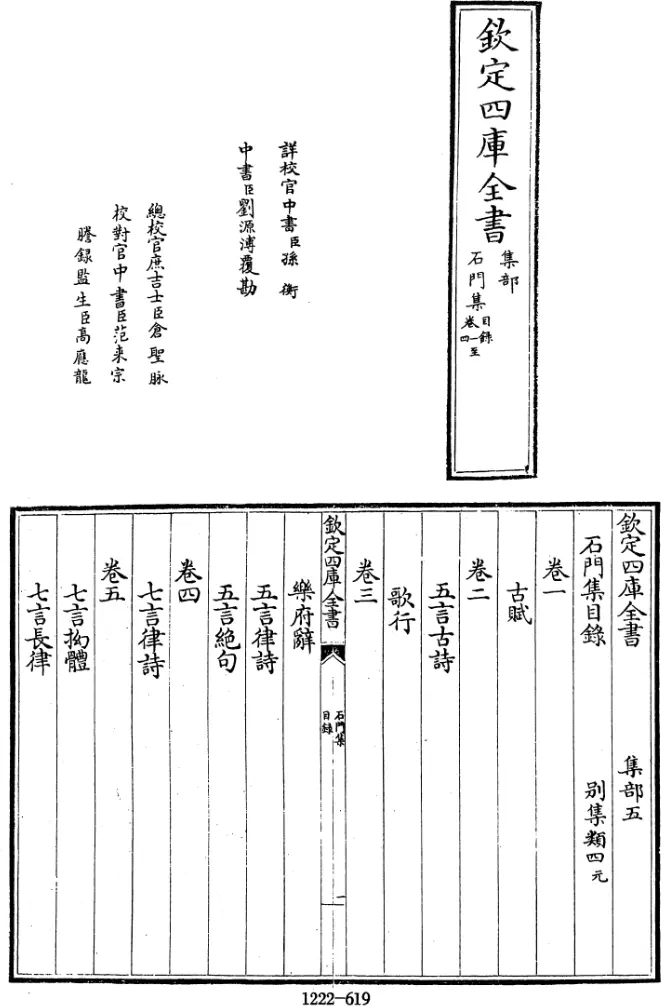 欽定四庫全書
集部
石門集
目錄
卷一至
四
詳校官中書臣孫衡
中書臣劉源溥覆勘
總校官庶吉士臣倉聖脉
校對官中書臣范来宗
謄録監生臣高應龍
欽定四庫全書 集部五
石門集目録 别集類四元
卷一
古賦
卷二
五言古詩
歌行
卷三
欽定四庫全書 石門集 目録 一
樂府辭
五言律詩
五言絶句
卷四
七言律詩
卷五
七言拗體
七言長律
1222-619